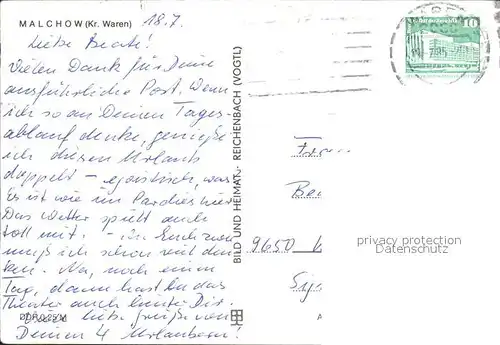 MALCHOW (Kr. Waren) 18.7.
Liebe Beate!
Vielen Dank für Deine
ausführliche Post. Wenn
ich so an Deinen Tages-
ablauf denke, genieße
ich diesen Urlaub
doppelt – egoistisch, was?
Es ist wie im Pardies hier
Das Wetter spielt auch
toll mit. – An Euch
muß ich schon mit den
ken. Na, noch einen
Tag, dann hast Du das
Theater auch hinter Dir.
liebe Grüße von
Deinen 4 Urlaubern!
BILD UND HEIMAT · REICHENBACH (VOGTL)
10
Frau
Bea
9650 K
privacy protection
Datenschutz